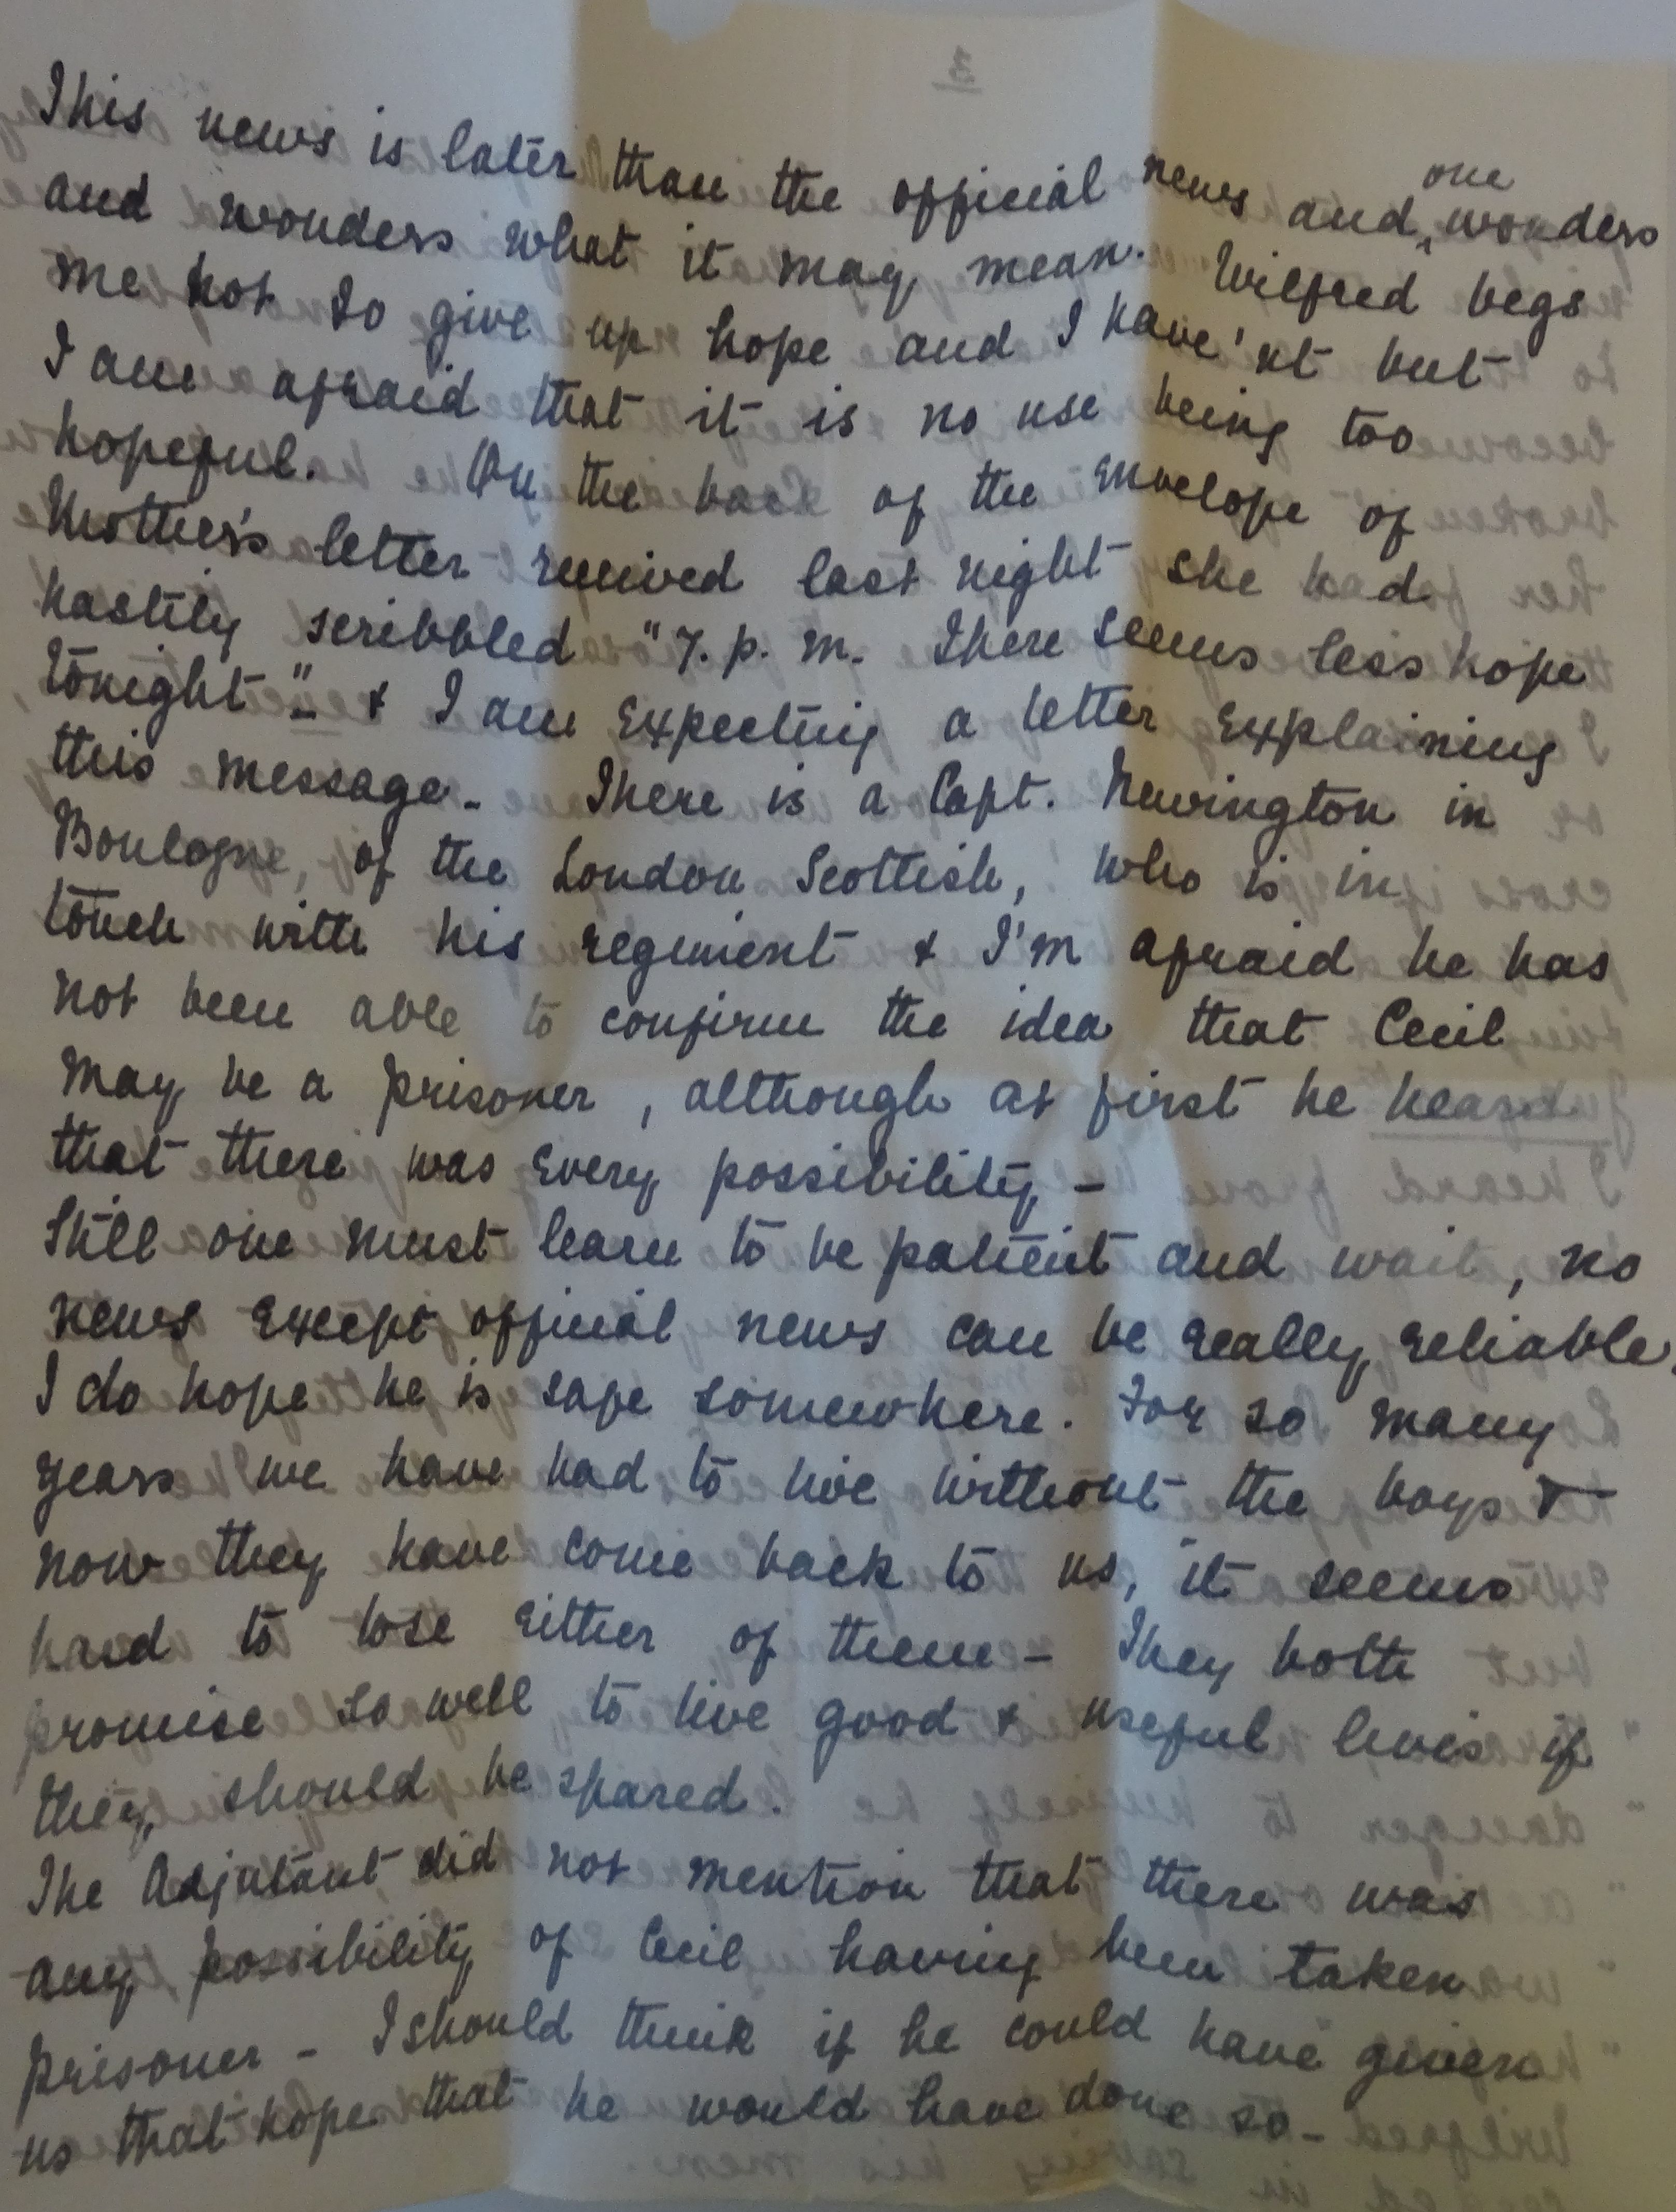 This news is later than the official news and one wonders
and wonders what it may mean. Wilfred begs
me not to give up hope and I have'nt but
I am afraid that it is no use being too
hopeful. On the back of the envelope of
Mother's letter received last night she had
hastily scribbled "7. p. m. There seems less hope
tonight" - & I am expecting a letter explaining
this message - There is a Capt. Newington in
Boulogne, of the London Scottish, who is in
touch with his regiment & I'm afraid he has
not been able to confirm the idea that Cecil
may be a prisoner, although at first he heard
that there was every possibility -
Still one must learn to be patient and wait, no
news except official news can be really reliable.
I do hope he is safe somewhere. For so many
years we have had to live without the boys &
now they have come back to us, it seems
hard to lose either of them - They both
promise so well to live good & useful lives if
they should be spared.
The Adjutant did not mention that there was
any possibility of Cecil having been taken
prisoner - I should think if he could have given
us that hope that he would have done so -